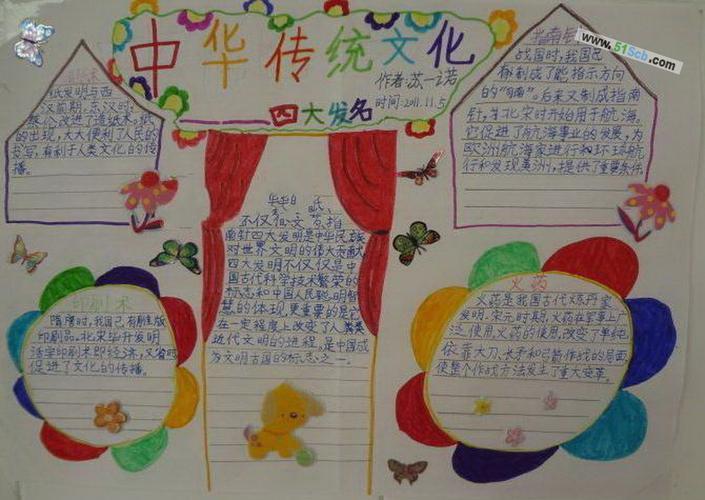 中华传统文化
作者:苏一诺
时间:2011.11.5
四大发名
www.51Scb.com
造纸术
纸发明与西
汉前期,东汉时,
蔡伦改进了造纸术,纸
的出现,大大便利了人民的
书写,有利于人类文化的传
播。
指南针
战国时,我国已
有制成了能指示方向
的"司南"。后来又制成指南
针,并北宋时开始用于航海,
它促进了航海事业的发展,为
欧洲航海家进行和环球航
行和发现美洲,提供了重要条件
不仅
指
南针四大发明是中华民族
对世界文明的伟大贡献
四大发明不仅仅是中
国古代科学技术繁荣的
标志和中国人民聪明智
慧的体现,更重要的是它
在一定程度上改变了人类
近代文明的进程,是中国成
为文明古国的标志之一.
印刷术
隋唐时,我国已有雕版
印刷品。北宋毕升发明
活字印刷术即经济,又省时
促进了文化的传播。
火药
火药是我国古代炼丹家
发明,宋元时期,火药在军事上广
泛使用,火药的使用,改变了单纯
依靠大刀、长矛和弓箭作战的局面
使整个作战方法发生了重大变革。